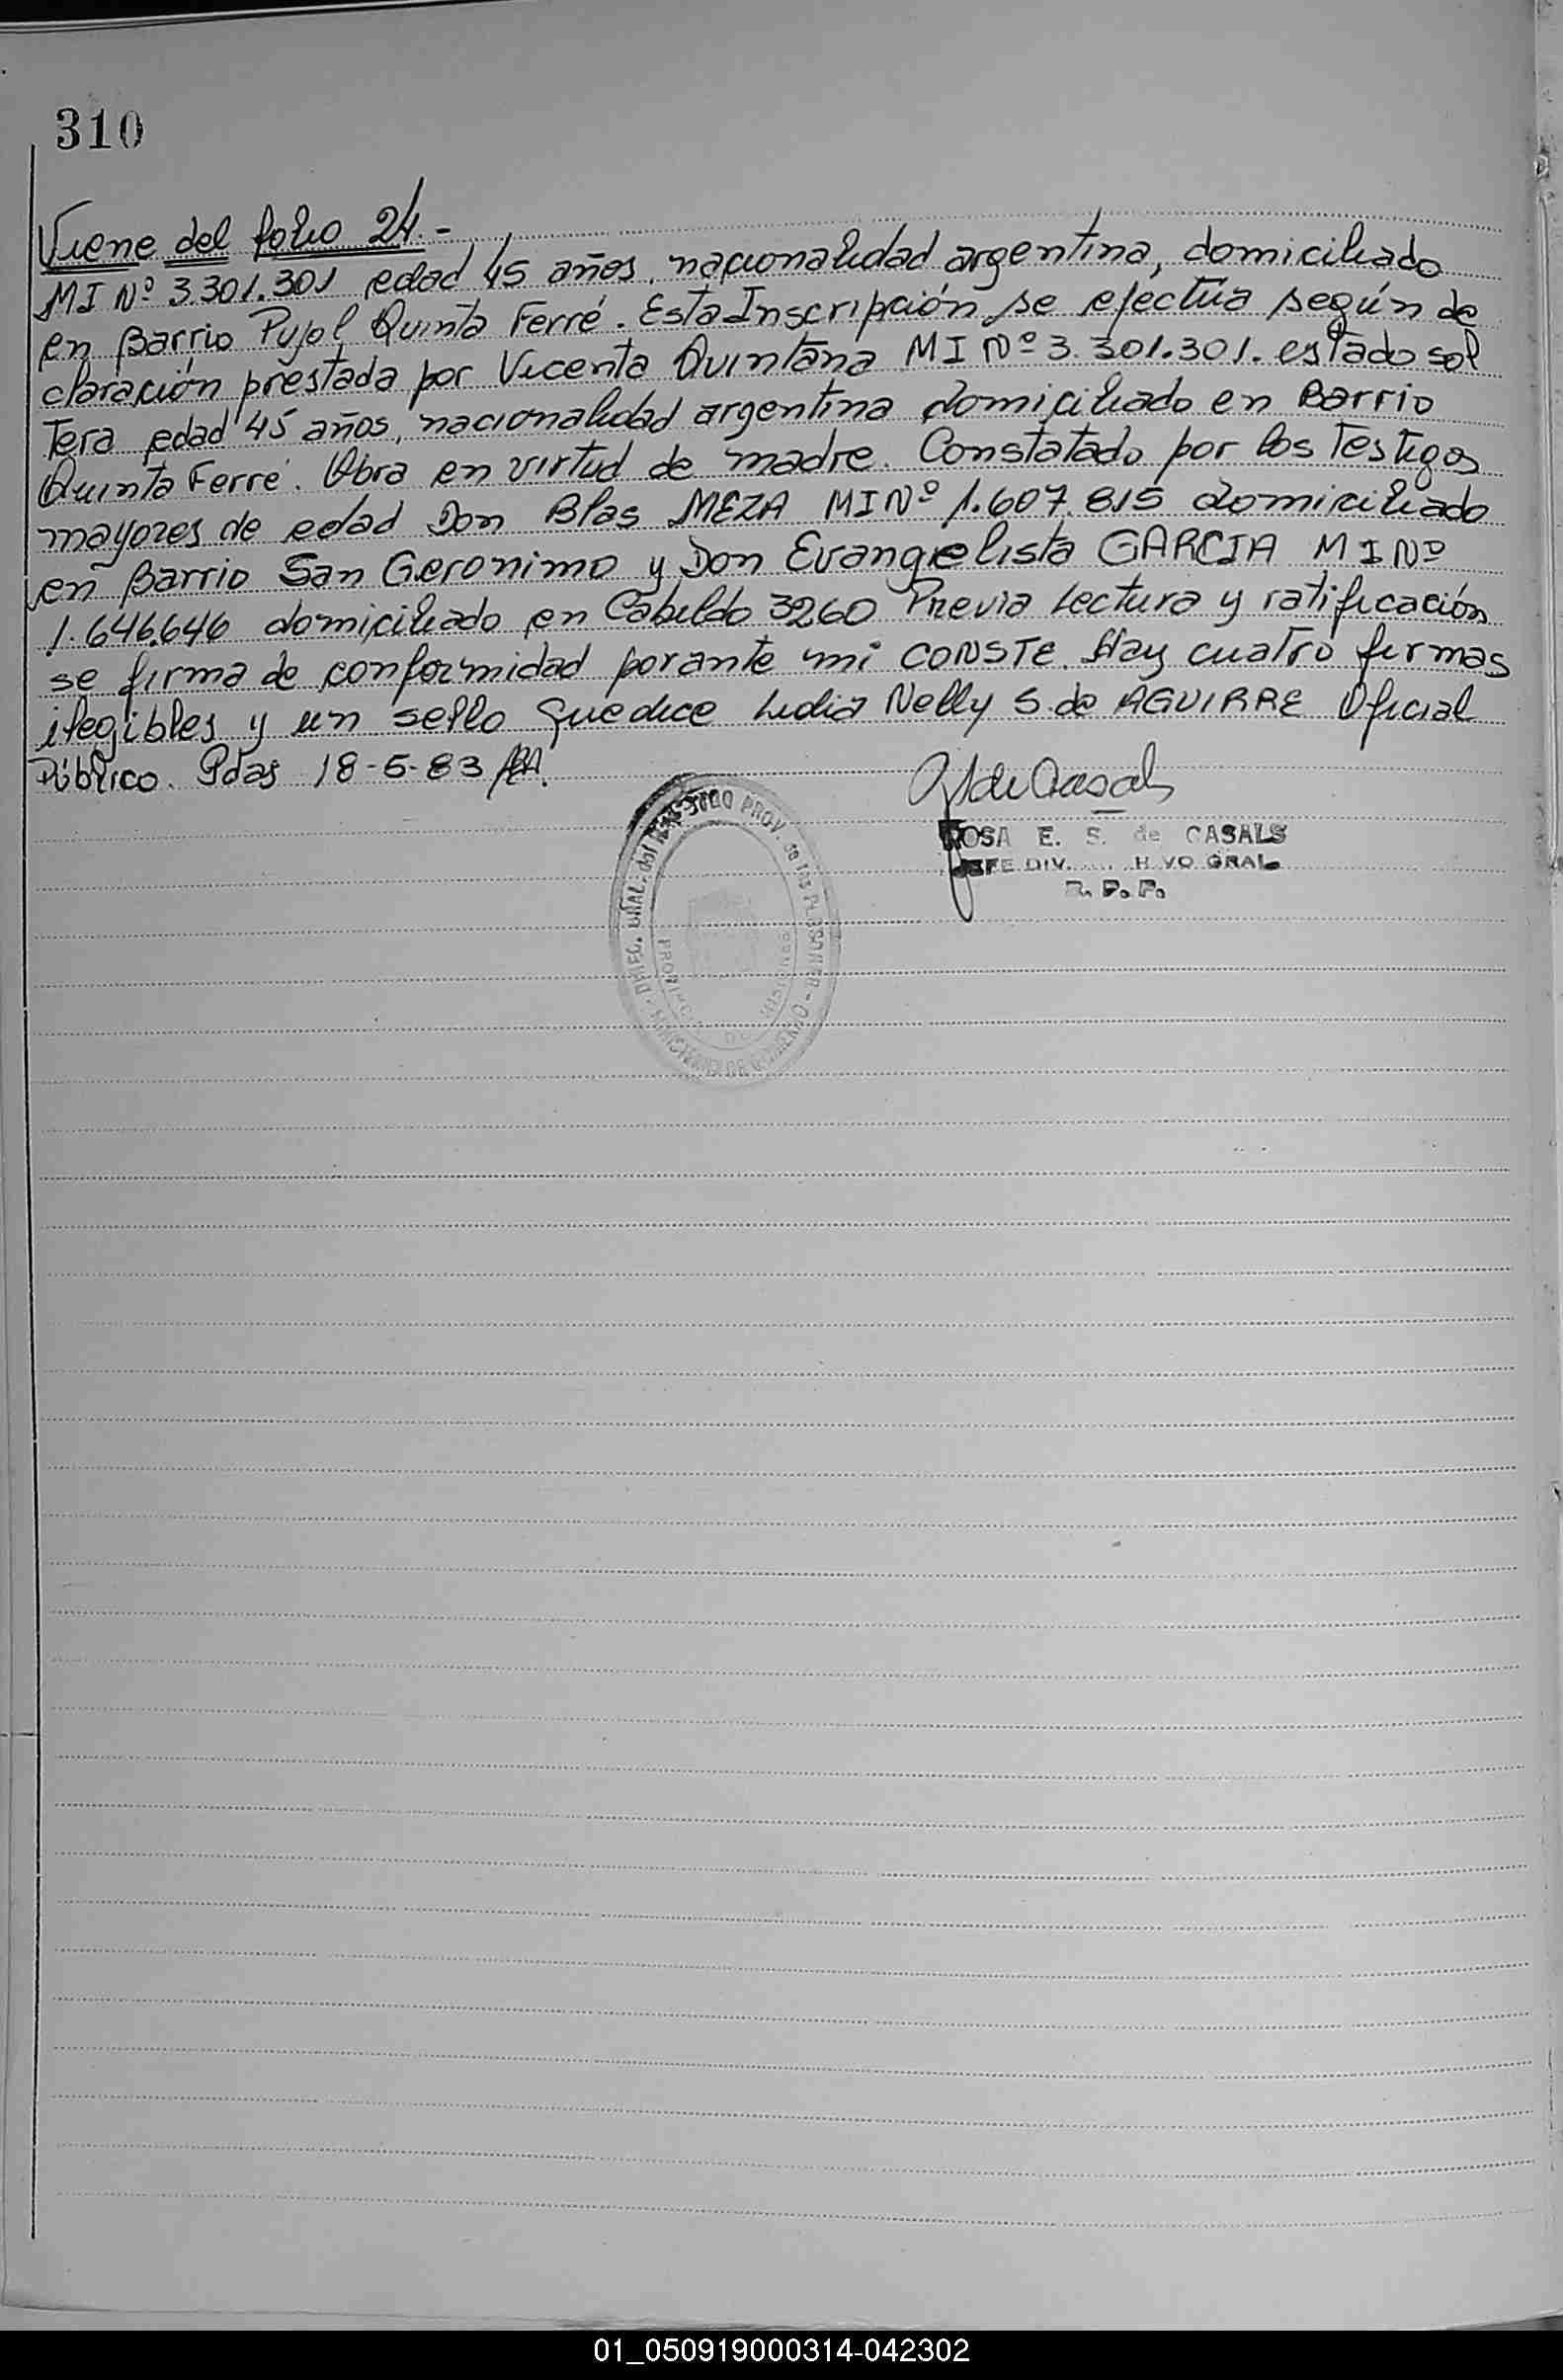 310
Viene del folio 24.-
MI Nº 3.301.301 edad 45 años, nacionalidad argentina, domiciliado
en Barrio Pujol Quinta Ferré. Esta Inscripción se efectúa según de
claración prestada por Vicenta Quintana MI Nº 3.301.301. estado sol
tera edad 45 años, nacionalidad argentina domiciliado en Barrio
Quinta Ferré. Obra en virtud de madre. Constatado por los Testigos
mayores de edad Don Blas MEZA MI Nº 1.607.815 domiciliado
en Barrio San Geronimo y Don Evangelista GARCIA MI Nº
1.646.646 domiciliado en Cabildo 3260 Previa lectura y ratificación
se firma de conformidad por ante mi CONSTE. Hay cuatro firmas
ilegibles y un sello que dice Lidia Nelly S. de AGUIRRE Oficial
Público. Pdas 18-5-83
ROSA E. S. de CASALS
JEFE DIV. GRAL.
R. P. P.
DIREC. GRAL. del PROV. de las PERSONAS
PROVINCIA DE MISIONES
01_050919000314-042302